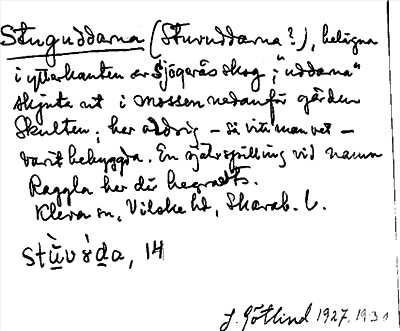 Stuguddarna (Stuvuddarna?), belägna
i ytterkanten av Sjögerås skog; "uddarna"
skjuta ut i mossen nedanför gården
Skulten; har aldrig – så vitt man vet –
varit bebyggda. En självspilling vid namn
Raggla har där begravts.
Kleva sn, Vilske hd, Skarab. l.
14
J. Götlind 1927. 1931